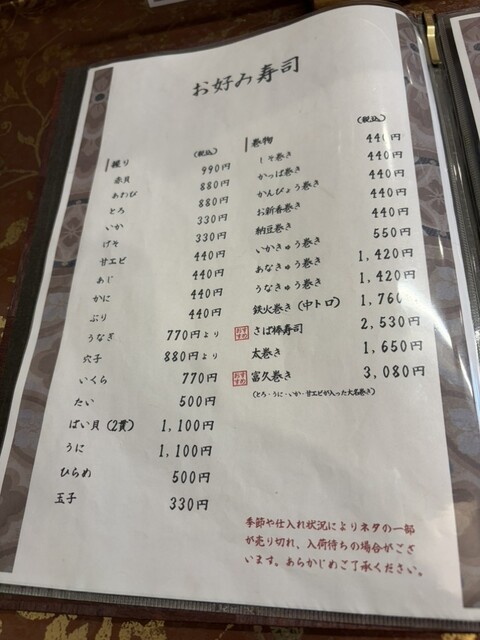 お好み寿司
握り (税込)
赤貝 990円
あわび 880円
とろ 880円
いか 330円
げそ 330円
甘エビ 440円
あじ 440円
かに 440円
ぶり 440円
うなぎ 770円より
穴子 880円より
いくら 770円
たい 500円
ばい貝(2貫) 1,100円
うに 1,100円
ひらめ 500円
玉子 330円
巻物 (税込)
しそ巻き 440円
かっぱ巻き 440円
かんぴょう巻き 440円
お新香巻き 440円
納豆巻き 440円
いかきゅう巻き 550円
あなきゅう巻き 1,420円
うなきゅう巻き 1,420円
鉄火巻き(中トロ) 1,760円
おすすめ さば棒寿司 2,530円
太巻き 1,650円
おすすめ 富久巻き 3,080円
(とろ・うに・いか・甘エビが入った大名巻き)
季節や仕入れ状況によりネタの一部
が売り切れ、入荷待ちの場合がござ
います。あらかじめご了承ください。